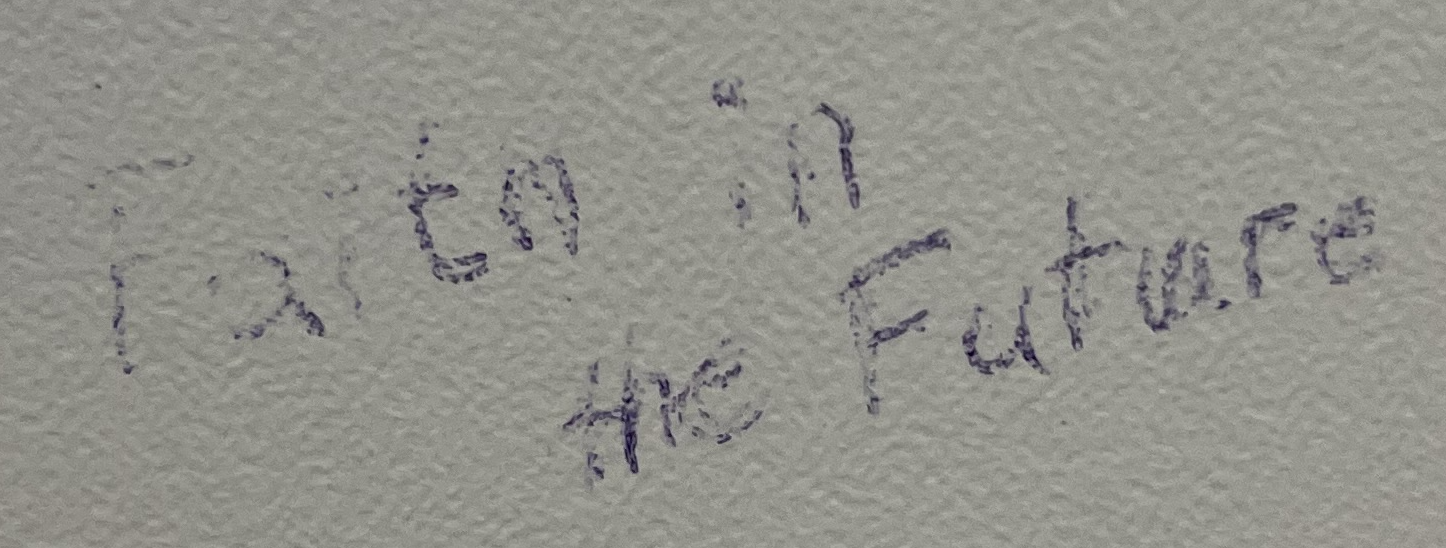 Faith in
the Future